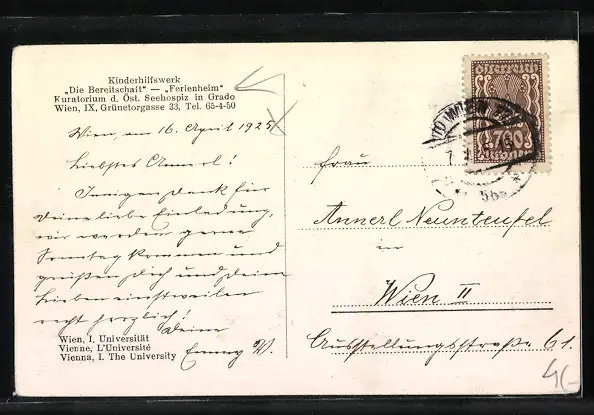 Kinderhilfswerk
„Die Bereitschaft" — „Ferienheim"
Kuratorium d. Öst. Seehospiz in Grado
Wien, IX, Grünetorgasse 33, Tel. 65-4-50
Wien, am 16. April 1925
Liebstes Annerl!
Innigen Dank für
Deine liebe Einladung,
wir werden gerne
Sonntag kommen und
grüßen Dich und Deine
Lieben einstweilen
recht herzlich!
Deine
Emmy W.
Wien, I. Universität
Vienne, L'Université
Vienna, I. The University
WIEN
Frau
Annerl Neunteufel
in
Wien II
Ausstellungsstraße 61.
4(-